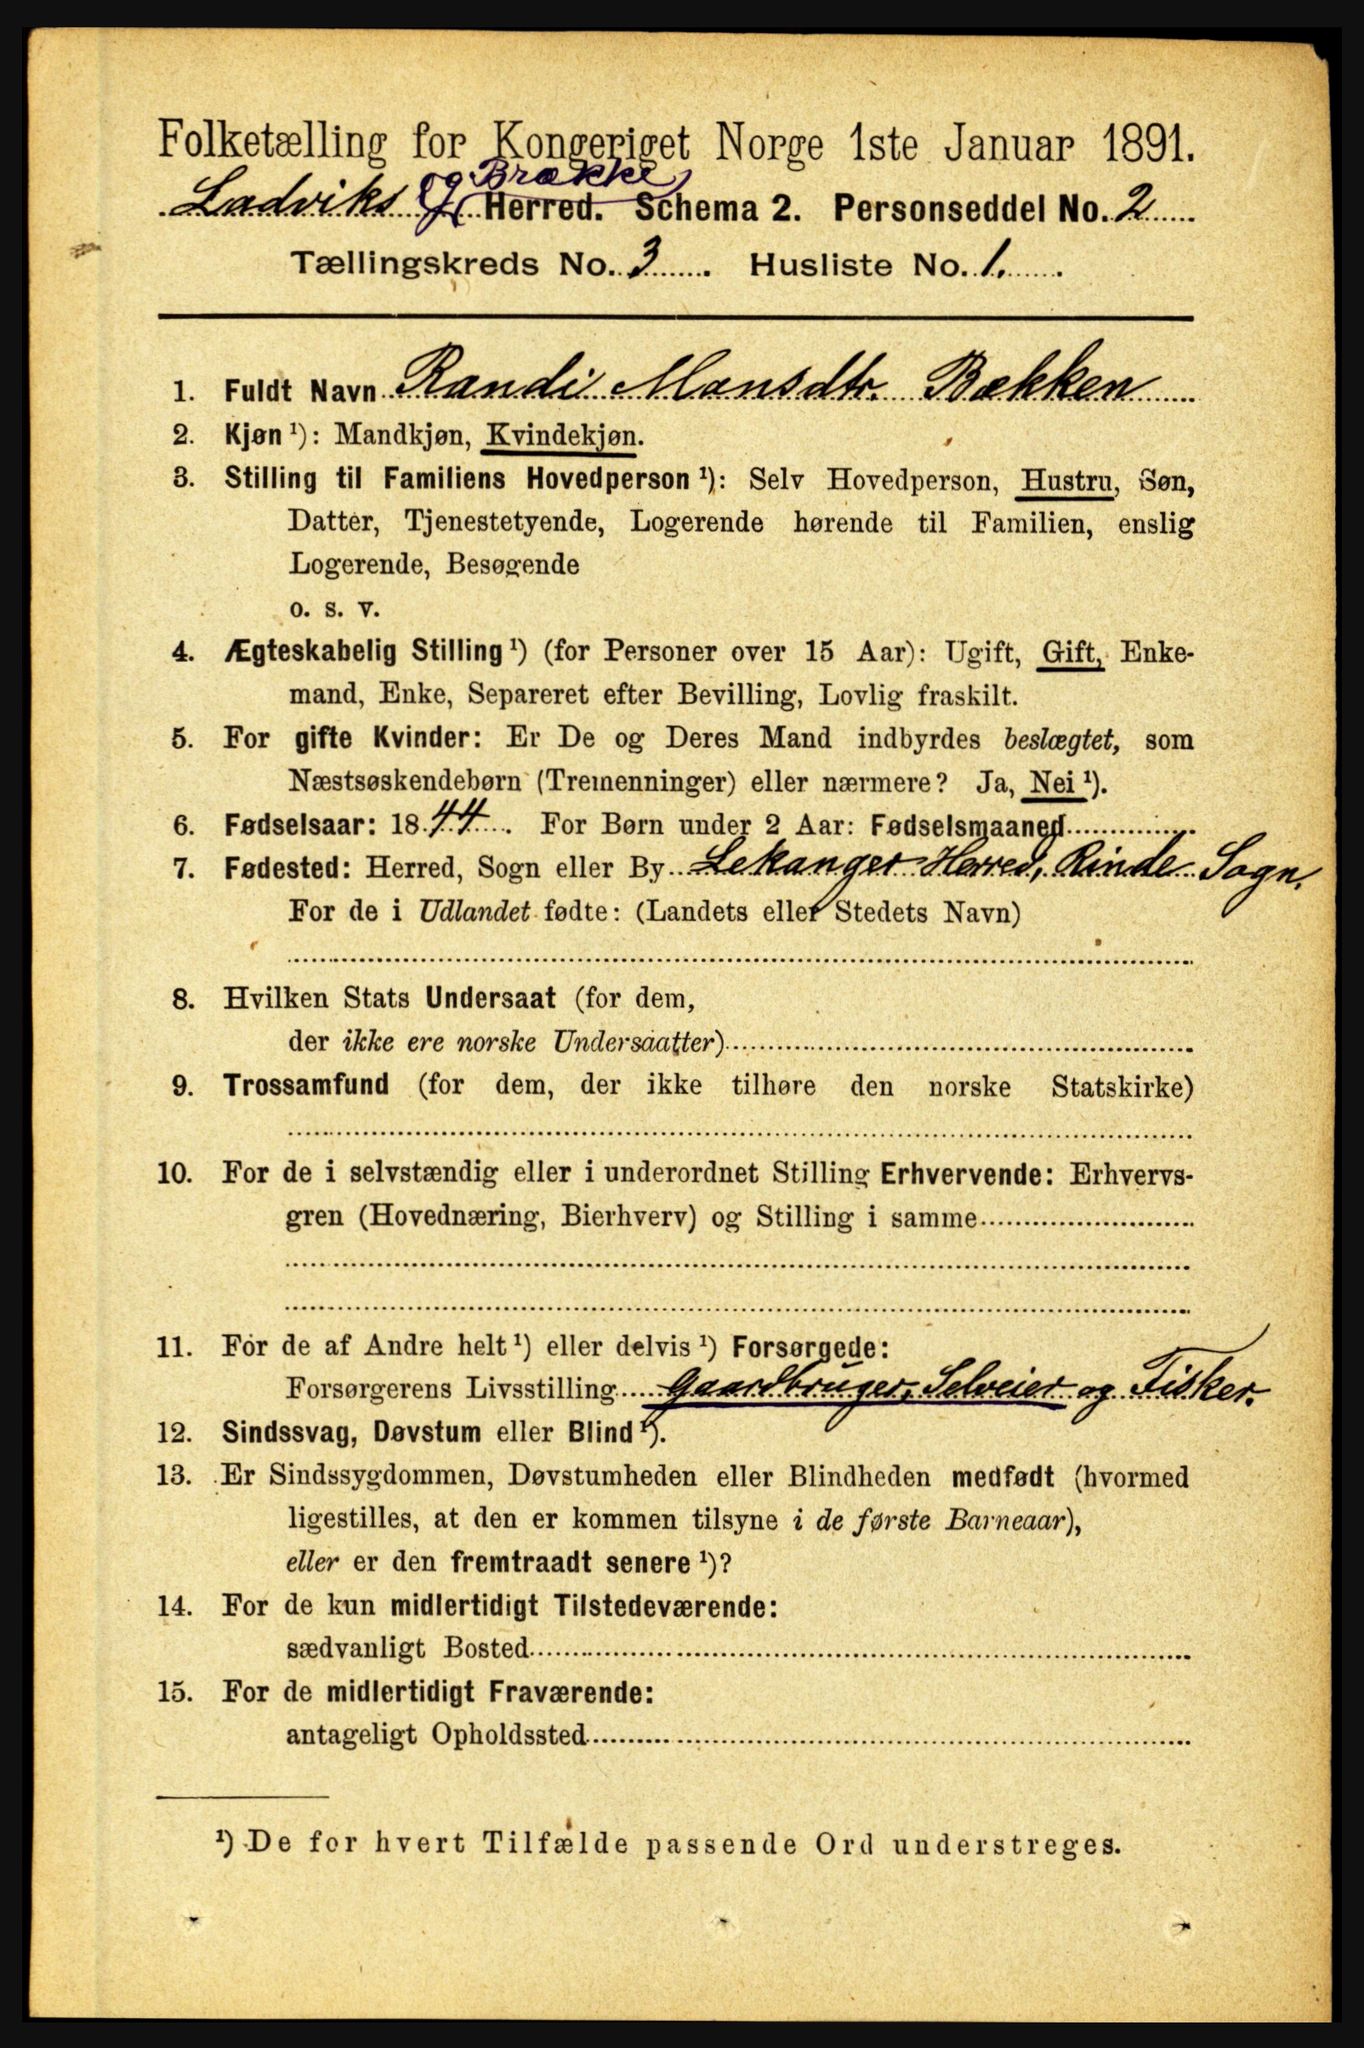 Folketælling for Kongeriget Norge 1ste Januar 1891.
Ladviks og Brække Herred. Schema 2. Personseddel No. 2
Tællingskreds No. 3. Husliste No. 1.
1. Fuldt Navn Randi Monsdtr. Bækken
2. Kjøn ¹): Mandkjøn, Kvindekjøn.
3. Stilling til Familiens Hovedperson ¹): Selv Hovedperson, Hustru, Søn,
Datter, Tjenestetyende, Logerende hørende til Familien, enslig
Logerende, Besøgende
o. s. v.
4. Ægteskabelig Stilling ¹) (for Personer over 15 Aar): Ugift, Gift, Enke-
mand, Enke, Separeret efter Bevilling, Lovlig fraskilt.
5. For gifte Kvinder: Er De og Deres Mand indbyrdes beslægtet, som
Næstsøskendebørn (Tremenninger) eller nærmere? Ja, Nei ¹).
6. Fødselsaar: 1844. For Børn under 2 Aar: Fødselsmaaned
7. Fødested: Herred, Sogn eller By Lekanger Herred, Rinde Sogn.
For de i Udlandet fødte: (Landets eller Stedets Navn)
8. Hvilken Stats Undersaat (for dem,
der ikke ere norske Undersaatter)
9. Trossamfund (for dem, der ikke tilhøre den norske Statskirke)
10. For de i selvstændig eller i underordnet Stilling Erhvervende: Erhvervs-
gren (Hovednæring, Bierhverv) og Stilling i samme
11. For de af Andre helt ¹) eller delvis ¹) Forsørgede:
Forsørgerens Livsstilling Gaardbruger, Selveier og Fisker.
12. Sindssvag, Døvstum eller Blind ¹).
13. Er Sindssygdommen, Døvstumheden eller Blindheden medfødt (hvormed
ligestilles, at den er kommen tilsyne i de første Barneaar),
eller er den fremtraadt senere ¹)?
14. For de kun midlertidigt Tilstedeværende:
sædvanligt Bosted
15. For de midlertidigt Fraværende:
antageligt Opholdssted
¹) De for hvert Tilfælde passende Ord understreges.